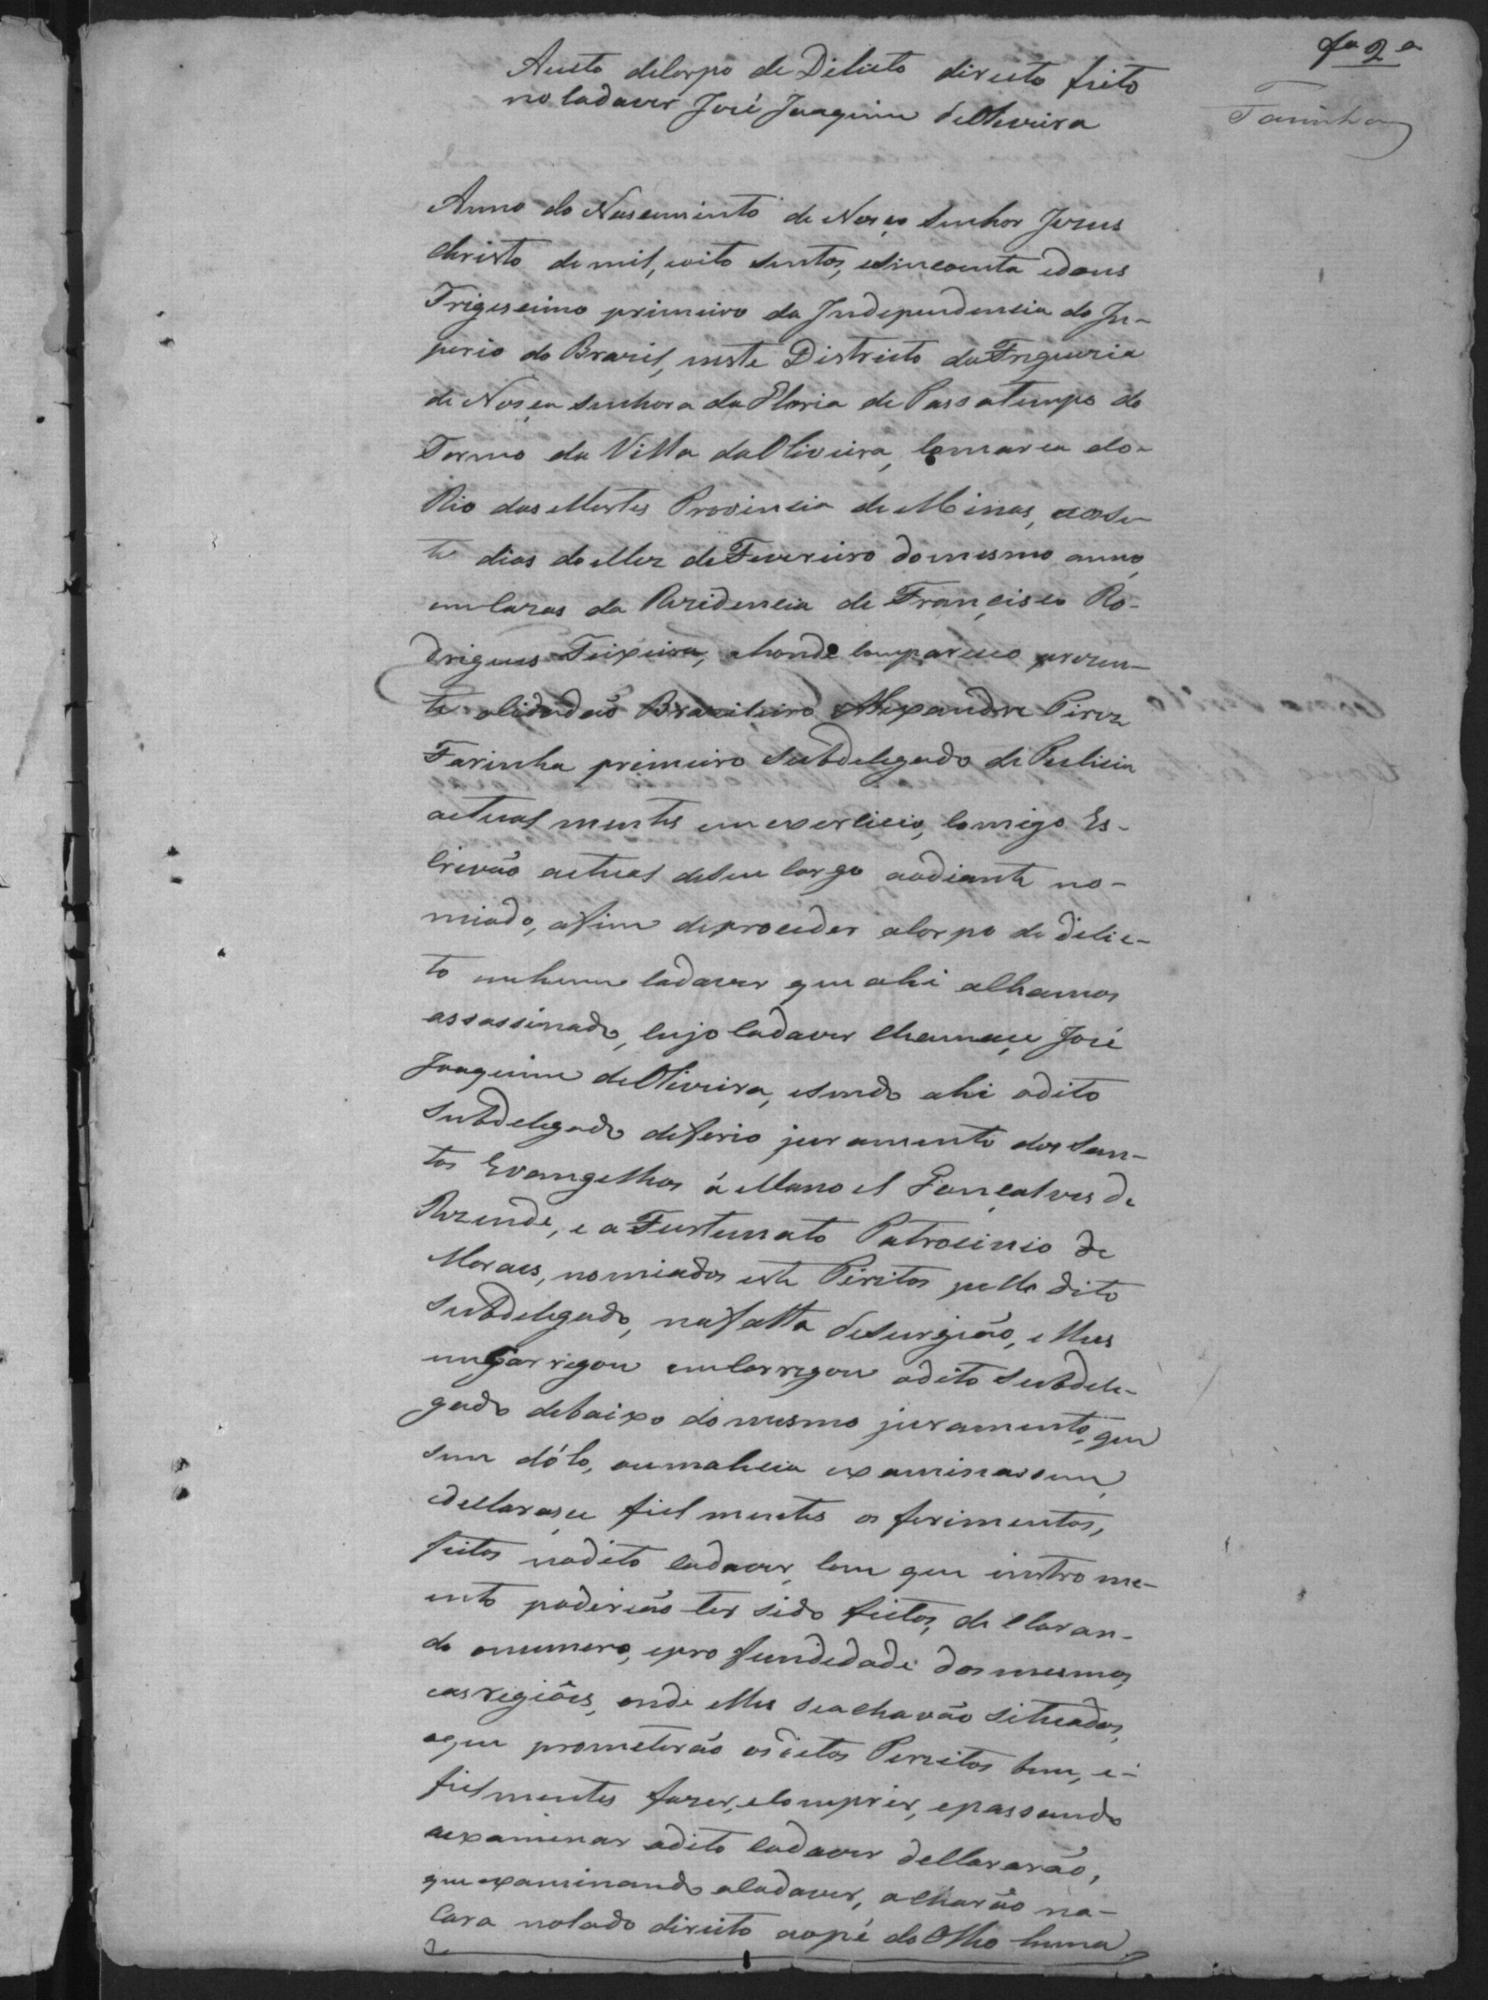 fa 2a
Farinha
Auto deCorpo de Delicto directo feito
no Cadaver José Joaquim deOliveira
Anno do Nascimento de Nosço Senhor Jezus
Christo de mil, oito sentos, esincoenta edous
Trigessimo primeiro da Independensia do Im-
perio do Brazil, neste Districto da Freguezia
de Nosça Senhora da Gloria de Passatempo do
Termo da Villa daOliveira, Comarca do
Rio das Mortes Provincia de Minas, aosse
te dias do Mez de Fevereiro domesmo anno,
emCazas da Rezidencia de Françisco Ro-
drigues Teixeira, ahonde Compareceo prezen-
te oCidadão Brazileiro Alexandre Pirez
Farinha primeiro Subdelegado de Pulicia
actual mentes emexercicio, Comigo Es-
Crivão actual deseu Cargo aodiante no-
miado, afim deproceder aCorpo de delic-
to emhum Cadaver que ahi alhamos
assassinado, Cujo Cadaver Chamaçe José
Joaquim deOliveira, esendo ahi odito
Subdelegado deferio juramento dos San-
tos Evangelhos á Manoel Gonçalves de
Rezende, e a Furtunato Patrocinio de
Moraes, nomiados este Piritos pello dito
Subdelegado, nafalta desurgião, elhes
emgarregou emCarregou odito Subdele-
gado debaixo do mesmo juramento, que
sem dólo, oumalicia examinassem,
edeClarasçe fiel mentes os ferimentos,
feitos nodito Cadaver, Com que instrome-
ento poderião ter sido feitos, deClaran-
do onumero, epro fundidade dos mesmos,
easregiões, onde elles seachavão situados,
oque prometerão osditos Perzitos bem, e-
fielmentes fazer, eComprir, epassando
aexaminar odito Cadaver deClararão,
que examinando oCadaver, acharão na-
Cara nolado direito aopé do Olho huma